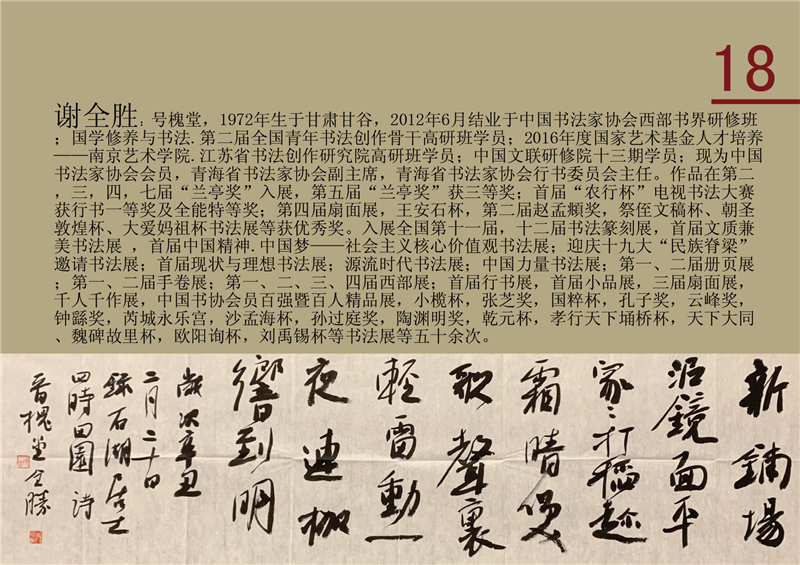 18
谢全胜：号槐堂，1972年生于甘肃甘谷，2012年6月结业于中国书法家协会西部书界研修班
；国学修养与书法.第二届全国青年书法创作骨干高研班学员；2016年度国家艺术基金人才培养
——南京艺术学院.江苏省书法创作研究院高研班学员；中国文联研修院十三期学员；现为中国
书法家协会会员，青海省书法家协会副主席，青海省书法家协会行书委员会主任。作品在第二
，三，四，七届“兰亭奖”入展，第五届“兰亭奖”获三等奖；首届“农行杯”电视书法大赛
获行书一等奖及全能特等奖；第四届扇面展，王安石杯，第二届赵孟頫奖，祭侄文稿杯、朝圣
敦煌杯、大爱妈祖杯书法展等获优秀奖。入展全国第十一届，十二届书法篆刻展，首届文质兼
美书法展 ，首届中国精神.中国梦——社会主义核心价值观书法展；迎庆十九大“民族脊梁”
邀请书法展；首届现状与理想书法展；源流时代书法展；中国力量书法展；第一、二届册页展
；第一、二届手卷展；第一、二、三、四届西部展；首届行书展，首届小品展，三届扇面展，
千人千作展，中国书协会员百强暨百人精品展，小榄杯，张芝奖，国粹杯，孔子奖，云峰奖，
钟繇奖，芮城永乐宫，沙孟海杯，孙过庭奖，陶渊明奖，乾元杯，孝行天下埇桥杯，天下大同
、魏碑故里杯，欧阳询杯，刘禹锡杯等书法展等五十余次。
新鋪場
泥鏡面平
家〻打稻趁
霜晴笑
歌聲裏
輕雷動一
夜連枷
響到明
歲次辛丑
二月二十日
錄石湖居士
四時田園詩
晉槐堂全勝